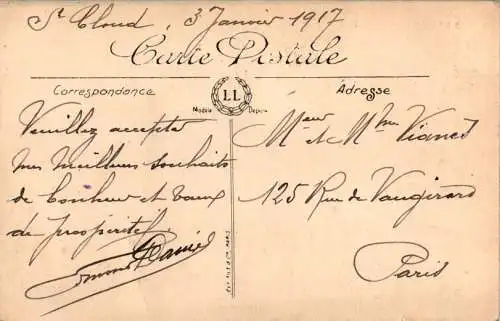 St Cloud, 3 Janvier 1917
Carte Postale
Correspondance
LL
Modèle Déposé
Adresse
Veuillez accepter
mes meilleurs souhaits
de bonheur et vœux
de prospérité
Meur et Mme
125 Rue de Vaugirard
Paris